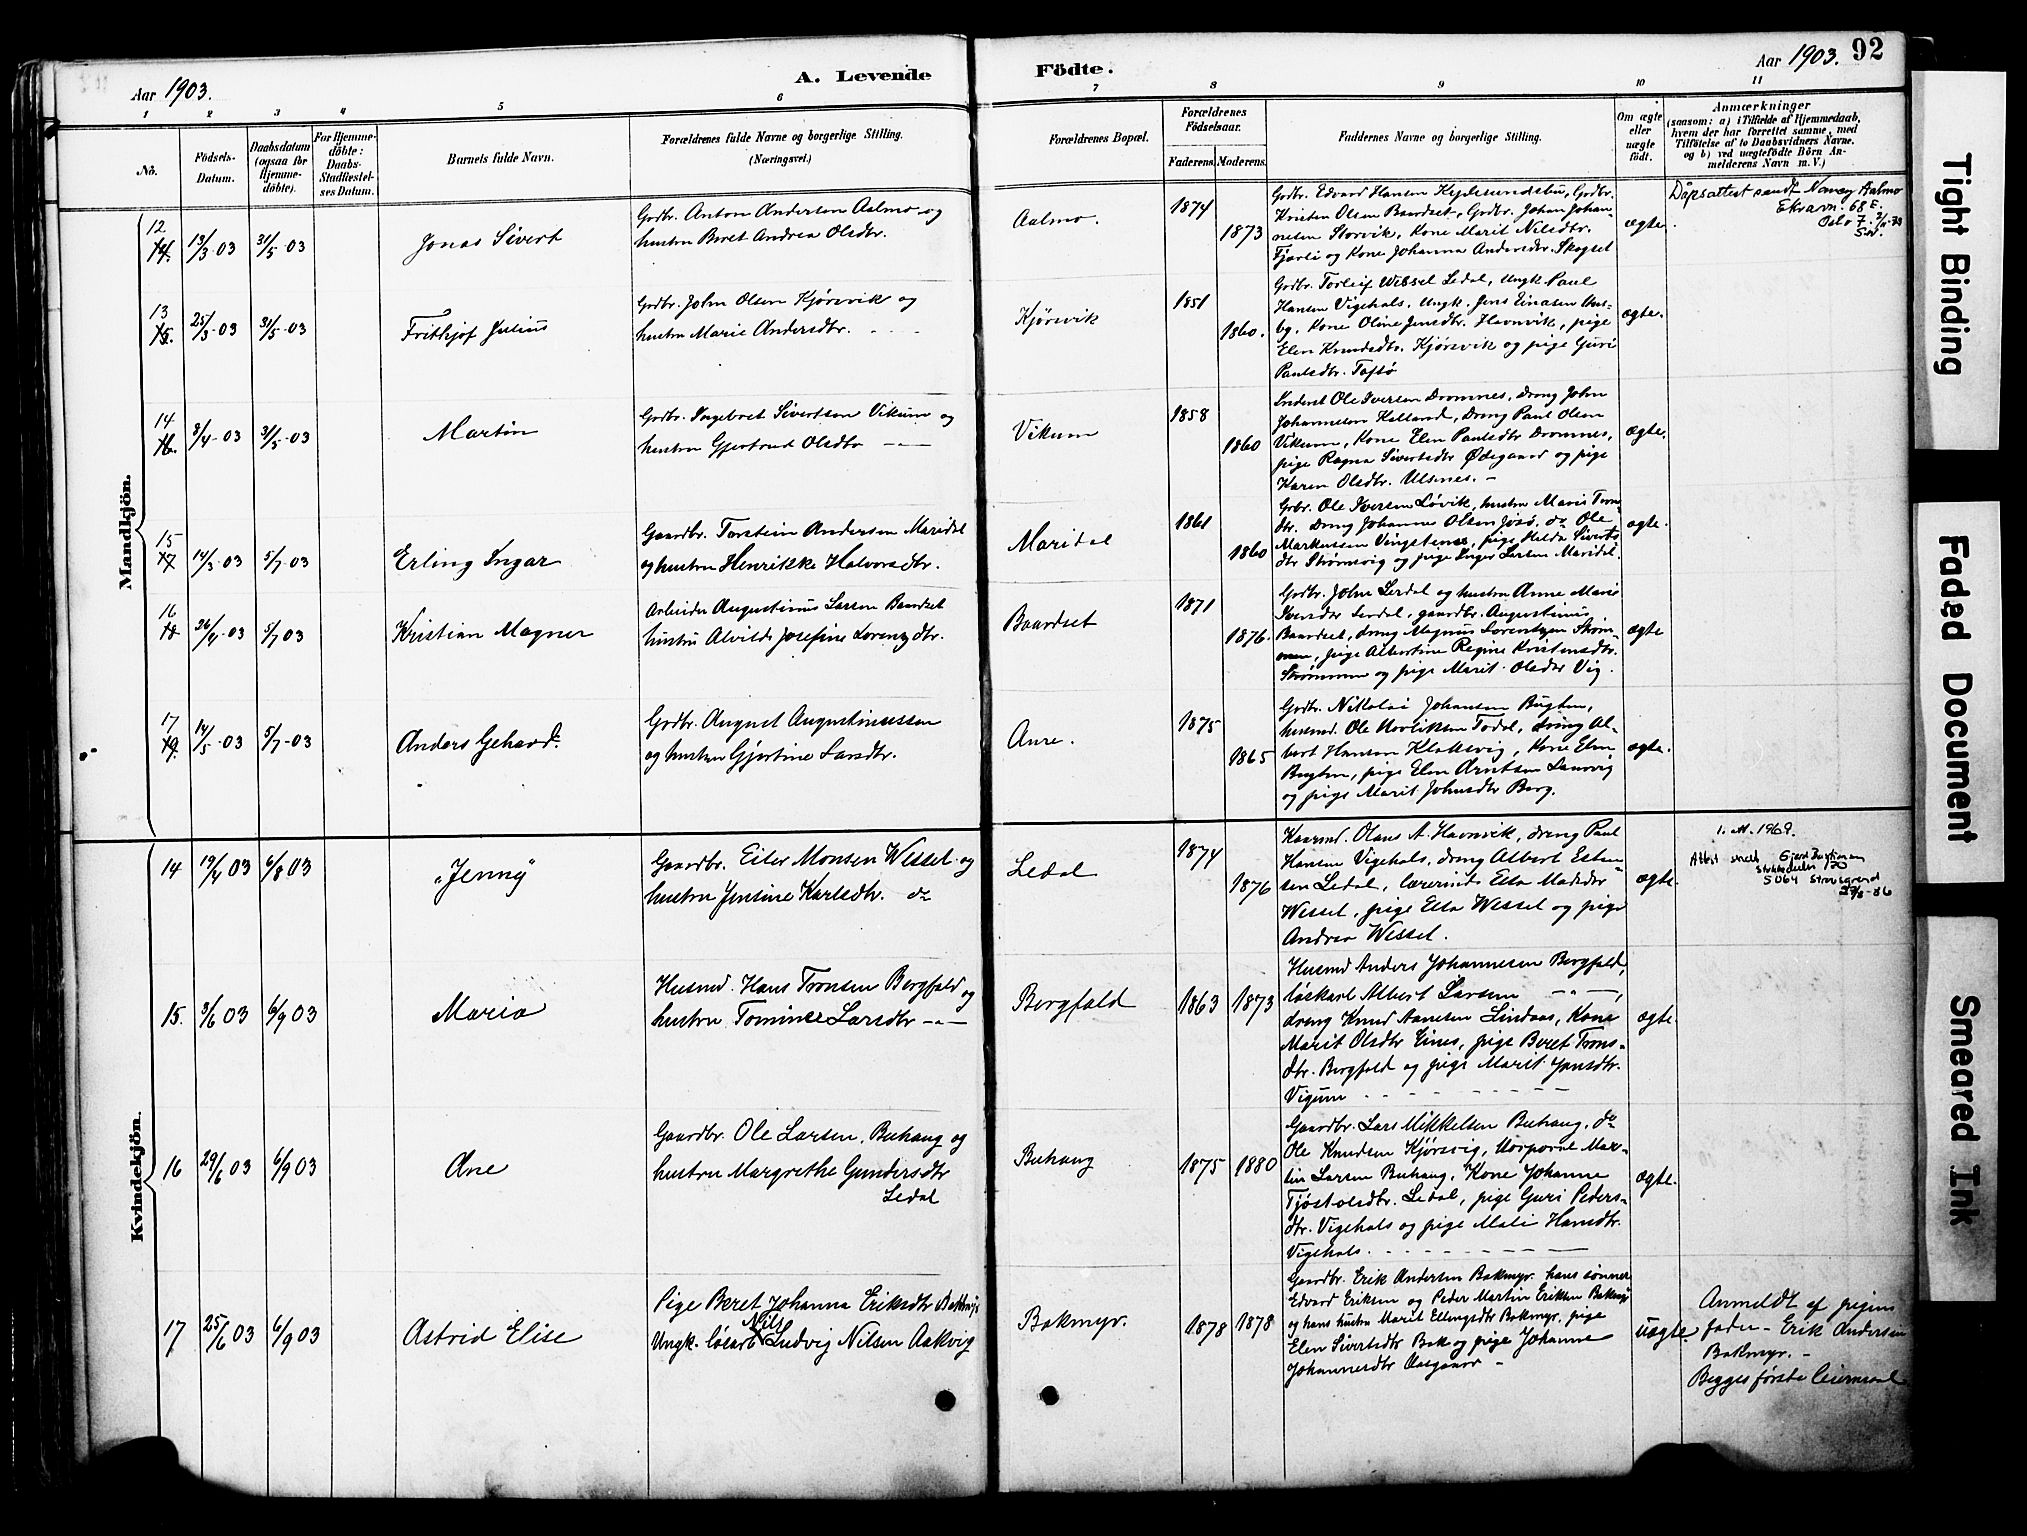 Aar 1903.
A. Levende
Födte.
Aar 1903. 92
1 2 3 4 5 6 7 8 9 10 11
No.
Födsels-
Datum.
Daabsdatum
(ogsaa for
Hjemme-
döbte).
For Hjemme-
döbte:
Daabs-
Stadfæstel-
ses Datum.
Barnets fulde Navn.
Forældrenes fulde Navne og borgerlige Stilling.
(Næringsvei.)
Forældrenes Bopæl.
Forældrenes
Födselsaar.
Faderens. Moderens.
Faddernes Navne og borgerlige Stilling.
Om ægte
eller
uægte
födt.
Anmærkninger
(saasom: a) i Tilfælde af Hjemmedaab,
hvem der har forrettet samme, med
Tilföielse af to Daabsvidners Navne,
og b) ved uægtefödte Börn An-
melderens Navn m. V.)
Mandkjön.
12
14.
13/3-03
31/5-03
Jonas Sivert
Gdbr. Anton Andersen Aalmo og
hustru Beret Andrea Olsdtr.
Aalmo.
1874
1873
Gdbr. Edvard Hansen Kjelsundsbu, Gdbr.
Kristen Olsen Baardset, Gdbr. Johan Johan-
nesen Storvik, Kone Marit Nilsdtr.
Fjærli og Kone Johanna Andersdtr. Skogset
ægte.
Dåpsattest sendt Nancy Aalmo
Ekravn. 68 E.
Oslo 7.
13
15.
25/3-03
31/5-03
Frithjof Julius
Gdbr. John Olsen Kjörsvik og
hustru Marie Andersdtr.
Kjörsvik
1851
1860.
Gdbr. Torleif Wessel Ledal, Ungk. Paul
Hansen Vigehals, Ungk. Jens Einasen Hus-
by, Kone Oline Jensdtr. Havnvik, pige
Elen Knudsdtr. Kjörsvik og pige Guri
Paulsdtr. Taftö
ægte.
14
16.
8/4-03
31/5-03
Martin
Gdbr. Ingebret Sivertsen Vikum og
hustru Gjertrud Olsdtr -"-
Vikum
1858
1860
Inderst Ole Iversen Dromnes, dreng John
Johannesen Kelland, dreng Paul Olsen
Vikum, Kone Elen Paulsdtr Dromnes,
pige Ragna Sivertsdtr Ødegaard og pige
Karen Olsdtr. Ulsnes. -
ægte.
15
17
14/3-03
5/7-03
Erling Ingar
Gaardbr. Torstein Andersen Maridal
og hustru Henrikke Halvorsdtr.
Maridal
1861
1860
Grbr. Ole Iversen Lövik, hustru Maris Tron-
dtr. dreng Johannes Olsen Jösö, do Ole
Markussen Vingstenes, pige Helda Siverts
dtr Strömsvig og pige Inger Larsen Maridal.
ægte.
16
18
26/4-03
5/7 03
Kristian Magner
Arbeider Augustinus Larsen Baardset
hustru Alvilde Josefine Lorenzdtr.
Baardset
1871
1876.
Gdbr. John Lerdal og hustru Anne Marie
Iversdtr Lerdal, gaardbr. Augustinus
Baardset, dreng Magnus Lorentzen Ström-
men, pige Albertine Regine Kristensdtr.
Strömmen og pige Marit Olsdtr Vig.
ægte
17
19.
14/5-03
5/7-03
Anders Gehard.
Gdbr. August Augustinussen
og hustru Gjertine Larsdtr.
Aure.
1875
1865
Gdbr. Nikolai Johansen Bugten,
husmd. Ole Hovliksen Todal, dreng Al-
bert Hansen Klaksvig, Kone Elen
Bugten, pige Elen Arntsen Laurvig
og pige Marit Johnsdtr Berg.
ægte.
Kvindekjön.
14
19/4 03
6/8 03
Jenny
Gaardbr. Eiler Monsen Wessel og
hustru Jensine Karlsdtr. do
Ledal
1874
1876
Kaarmd. Olaus A. Havnvik, dreng Paul
Hansen Vigehals, dreng Albert Esten-
sen Ledal, lærerinde Elsa Madsdtr
Wessel, pige Elsa Wessel og pige
Andrea Wessel.
ægte.
1. At. 1969.
Attest sendt
15.
3/6 03
6/9 03
Maria
Husmd. Hans Tronsen Bergfald og
hustru Tomine Larsdtr -"-
Bergfald
1863
1873
Husmd Anders Johannesen Bergfald,
löskarl Albert Larsen -"-,
dreng Knud Aanesen Lindaas, Kone
Marit Olsdtr Eines, pige Beret Trons-
dtr. Bergfald og pige Marit Jensdtr.
Vigum
ægte.
16
29/6 03
6/9 03
Ane
Gaardbr. Ole Larsen Buhaug og
hustru Margrethe Gundersdtr
Ledal
Buhaug
1875
1880
Gaardbr. Lars Mikkelsen Buhaug, do
Ole Knudsen Kjörsvig, Korporal Mar-
tin Larsen Buhaug, Kone Johanne
Tjöstolsdtr. Ledal, pige Guri Peders-
dtr. Vigehals og pige Mali Hansdtr.
Vigehals.
ægte.
17
25/6 03
6/9 03
Astrid Elise
Pige Beret Johanna Eriksdtr Bakmyr
Ungk. lösarb Nils Ludvig Nilsen Aakvig
Bakmyr.
1878
1878
Gaardbr. Erik Andersen Bakmyr. hans sönner
Edvard Eriksen og Peder Martin Eriksen Bakmyr
og hans hustru Marit Ellingsdtr Bakmyr, pige
Elen Sivertsdtr Bak og pige Johanne
Johannesdtr Aasgaard -
uægte.
Anmeldt af pigens
fader - Erik Andersen
Bakmyr. -
Begges förste leiermaal
Tight Binding
Faded Document
Smeared Ink